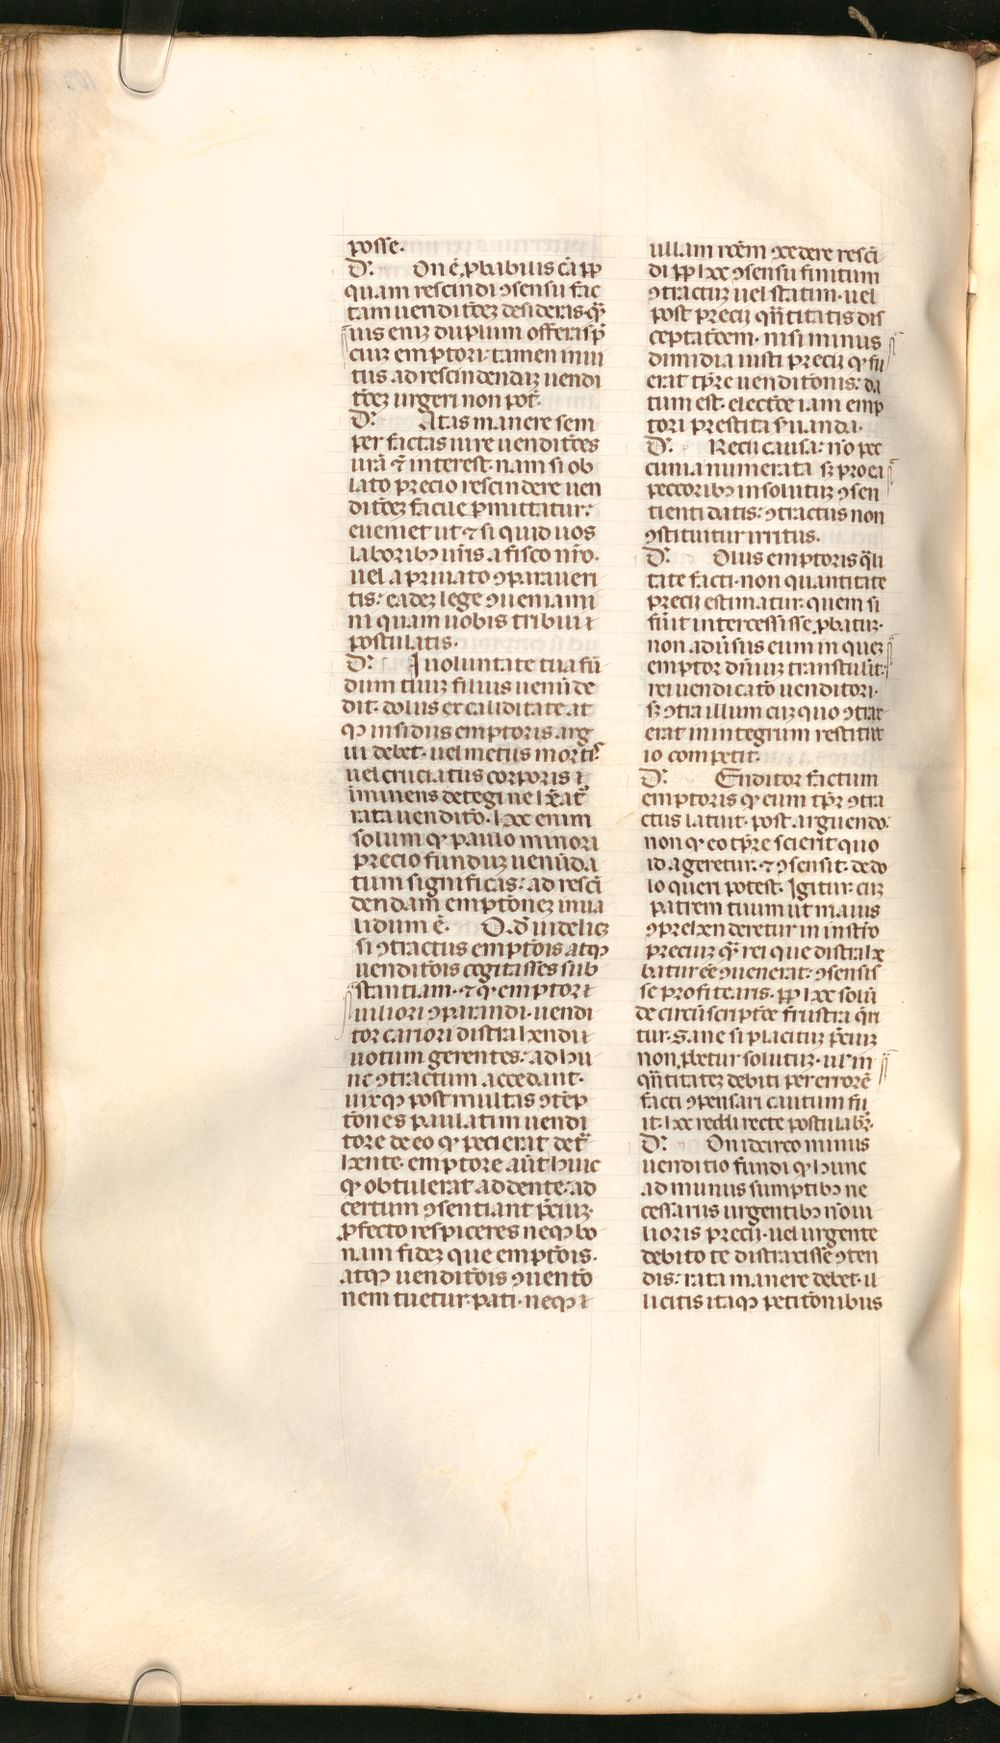 posse.
D͛. On ē ꝓbabilis cā ꝑꝑ
quam rescindi ꝯsensu fac
tam uenditōeꝫ desideris. qͣꝫ
uis eniꝫ duplum offeras p̄
cium emptori: tamen inui
tus ad rescindendaꝫ uendi
tōeꝫ urgeri non pot̄.
D͛. Atas manere sem
per factas iure uenditōes
urā ⁊ interest. nam si ob
lato precio rescindere uen
ditōeꝫ facile ꝑmittatur:
eueniet ut ⁊ si quid uos
laboribꝫ ur̄is a fisco nr̄o.
uel a priuato ꝯparaueri
tis: eadeꝫ lege ꝯueniami
ni quam uobis tribui
postulatis.
D͛. I uoluntate tua fū
dum tuuꝫ filius uenūde
dit. dolus ex caliditate at
qꝫ insidiis emptoris arg
ui debet. uel metus mortis
uel cruciatus corporis i
minens detegi ne hēat
rata uenditō. hoc enim
solum qꝫ paulo minori
precio funduꝫ uenūda
tum significas: ad resci
dendam emptōneꝫ inua
lidum ē. Q.d̄ uideliꝫ
si ꝯtractus emptōis atqꝫ
uenditōis cogitasses sub
stantiam. ⁊ qꝫ emptor
uiliori ꝯparandi. uendi
tor cariori distrahendi
uotum gerentes: ad hu
nc ꝯtractum accedant.
uixqꝫ post multas ꝯtēp
tōnes paulatim uendi
tore de eo qꝫ pecierat det̄
hente. emptore aūt huic
qꝫ obtulerat addente: ad
certum ꝯsentiant p̄ciuꝫ.
ꝓfecto respiceres neqꝫ bo
nam fideꝫ que emptōis.
atqꝫ uenditōis ꝯuentō
nem tuetur. pati. neqꝫ
ullam roēm ꝯcedere resci
di ꝑꝑ hoc ꝯsensu finitum
ꝯtractuꝫ uel statim. uel
post precii qn̄titatis dis
ceptatōem. nisi minus
dimidia iusti precii qꝫ fu
erat tp̄re uenditōnis: da
tum est. electōe iam emp
tori prestita s̄uanda.
D͛. Recii causa: nō pec
cunia numerata sꝫ pro ea
peccoribꝫ in solutuꝫ ꝯsen
tienti datis: ꝯtractus non
ꝯstituitur irritus.
D͛. Olus emptoris q̄li
tate facti. non quantitate
precii estimatur. quem si
fūit intercessisse ꝓbatur.
non adūsus eum in queꝫ
emptor dn̄iuꝫ transtulit:
rei uendicatō uenditori.
sꝫ ꝯtra illum cuꝫ quo ꝯtrax
erat in integrum restitut
io competit.
D͛. Enditor factum
emptoris qꝫ eum tp̄r ꝯtra
ctus latuit. post arguendo.
non qꝫ eo tp̄re scierit quo
id ageretur. ⁊ ꝯsensit. de do
lo queri potest. Igitur cuꝫ
patrem tuum ut maius
ꝯprehenderetur in instrō
preciuꝫ qͣꝫ rei que distrahe
batur eē ꝯuenerat: ꝯsensis
se profitearis. ꝑꝑ hoc solū
de circūscriptōe frustra qri
tur. Sane si placituꝫ p̄ciuꝫ
non ꝓbetur solutuꝫ. ul' in
qn̄titateꝫ debiti per errorē
facti ꝯpensari cautum fu
it. hoc reddi recte postulabr̄.
D͛. On idcirco minus
uenditio fundi qꝫ hunc
ad munus sumptibꝫ ne
cessarus urgentibꝫ nō ui
lioris precii. uel urgente
debito te distraxisse ꝯten
dis: rata manere debet. il
licitis itaqꝫ petitōnibus